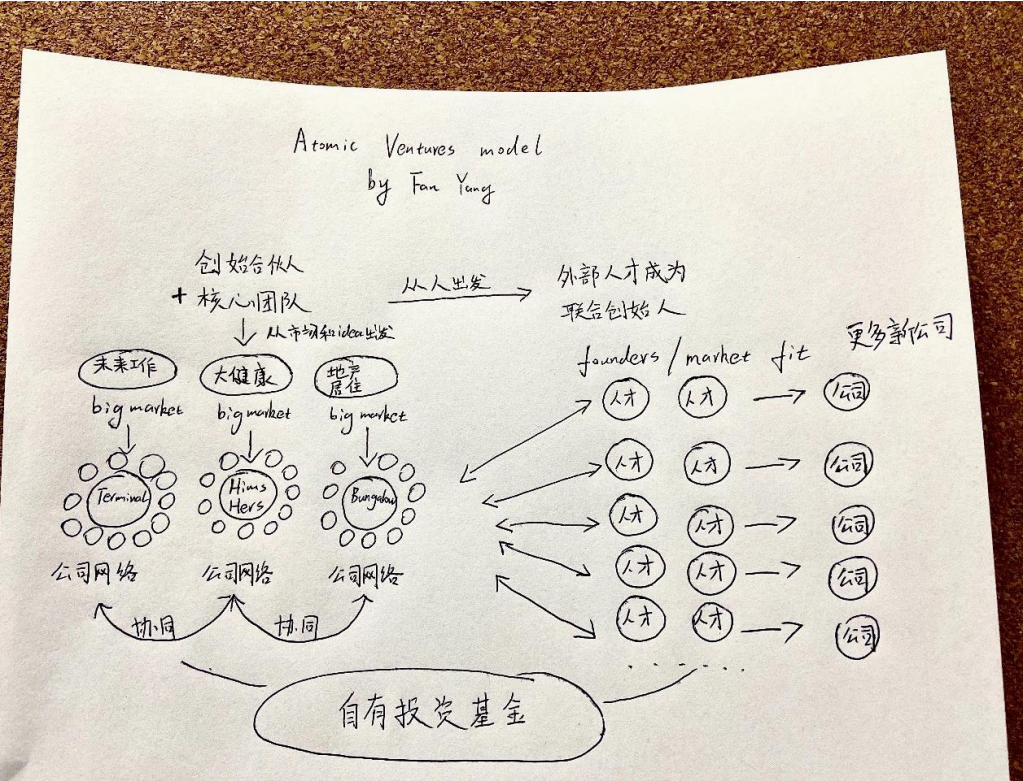 Atomic Ventures model
by Fan Yang
创始合伙人
+ 核心团队
从人出发
外部人才成为
联合创始人
从市场和idea出发
更多新公司
founders / market fit
未来工作
大健康
地产
居住
big market
big market
big market
人才 人才 公司
人才 人才 公司
人才 人才 公司
人才 人才 公司
人才 人才 公司
Terminal
Hims
Hers
Bungalow
公司网络
公司网络
公司网络
协同
协同
......
自有投资基金